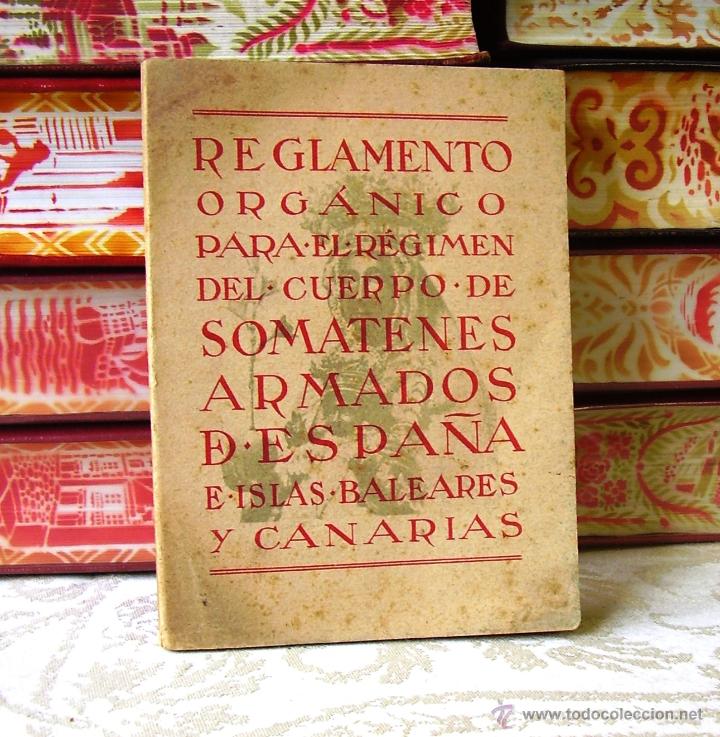 REGLAMENTO
ORGÁNICO
PARA·EL·RÉGIMEN
DEL·CUERPO·DE
SOMATENES
ARMADOS
DE·ESPAÑA
E·ISLAS·BALEARES
Y CANARIAS
www.todocoleccion.net